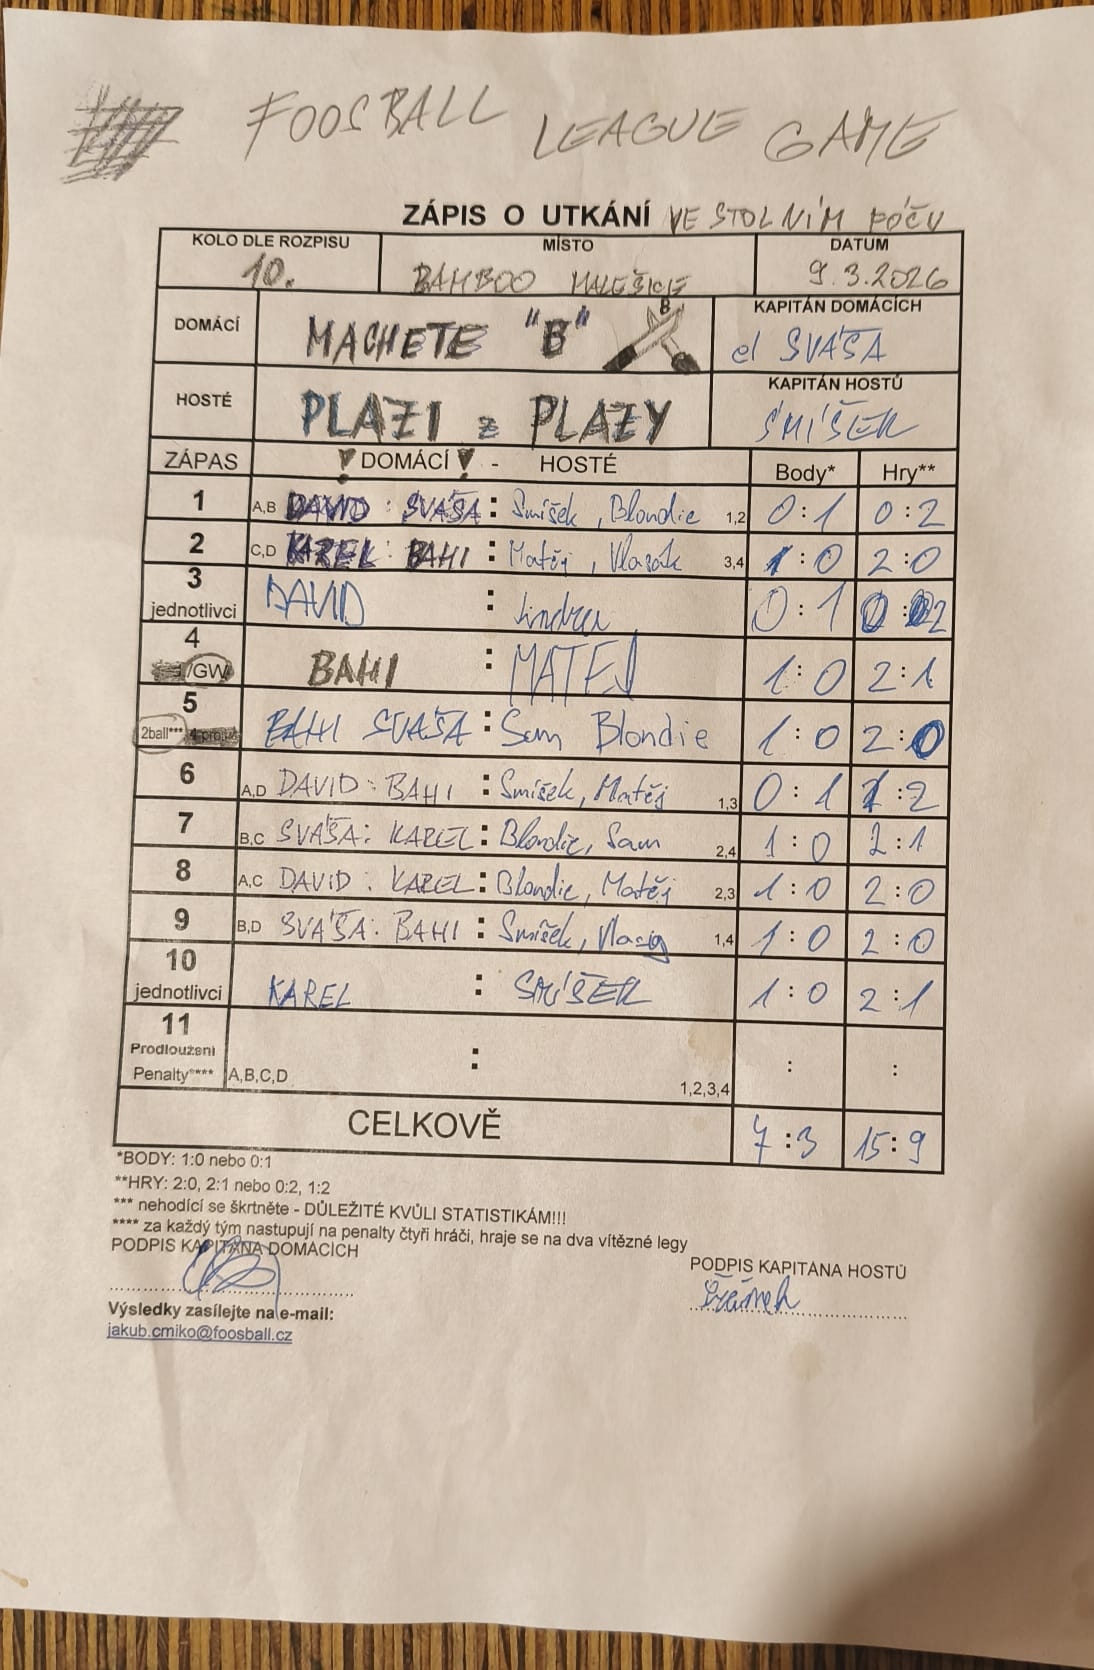 FOOSBALL LEAGUE GAME
ZÁPIS O UTKÁNÍ VE STOLNÍM FÓČU
KOLO DLE ROZPISU MÍSTO DATUM
10. BAMBOO MALEŠICE 9.3.2026
DOMÁCÍ MACHETE "B" KAPITÁN DOMÁCÍCH
el SVÁŠA
HOSTÉ PLAZI z PLAZY KAPITÁN HOSTŮ
ŠMÍŠEK
ZÁPAS DOMÁCÍ - HOSTÉ Body* Hry**
1 A,B DAVID : SVÁŠA : Smíšek, Blondie 1,2 0:1 0:2
2 C,D KAREL : BAHI : Matěj, Vlasák 3,4 1:0 2:0
3 jednotlivci DAVID : 0:1 0:2
4 GW BAHI : MATEJ 1:0 2:1
5 2ball*** BAHI SVÁŠA : Sam Blondie 1:0 2:0
6 A,D DAVID : BAHI : Smíšek, Matěj 1,3 0:1 1:2
7 B,C SVÁŠA : KAREL : Blondie, Sam 2,4 1:0 2:1
8 A,C DAVID : KAREL : Blondie, Matěj 2,3 1:0 2:0
9 B,D SVÁŠA : BAHI : Smíšek, 1,4 1:0 2:0
10 jednotlivci KAREL : SMÍŠEK 1:0 2:1
11 Prodloužení : : :
Penalty**** A,B,C,D 1,2,3,4
CELKOVĚ 7:3 15:9
*BODY: 1:0 nebo 0:1
**HRY: 2:0, 2:1 nebo 0:2, 1:2
*** nehodící se škrtněte - DŮLEŽITÉ KVŮLI STATISTIKÁM!!!
**** za každý tým nastupují na penalty čtyři hráči, hraje se na dva vítězné legy
PODPIS KAPITÁNA DOMÁCÍCH
PODPIS KAPITANA HOSTŮ
Výsledky zasílejte na e-mail:
jakub.cmiko@foosball.cz